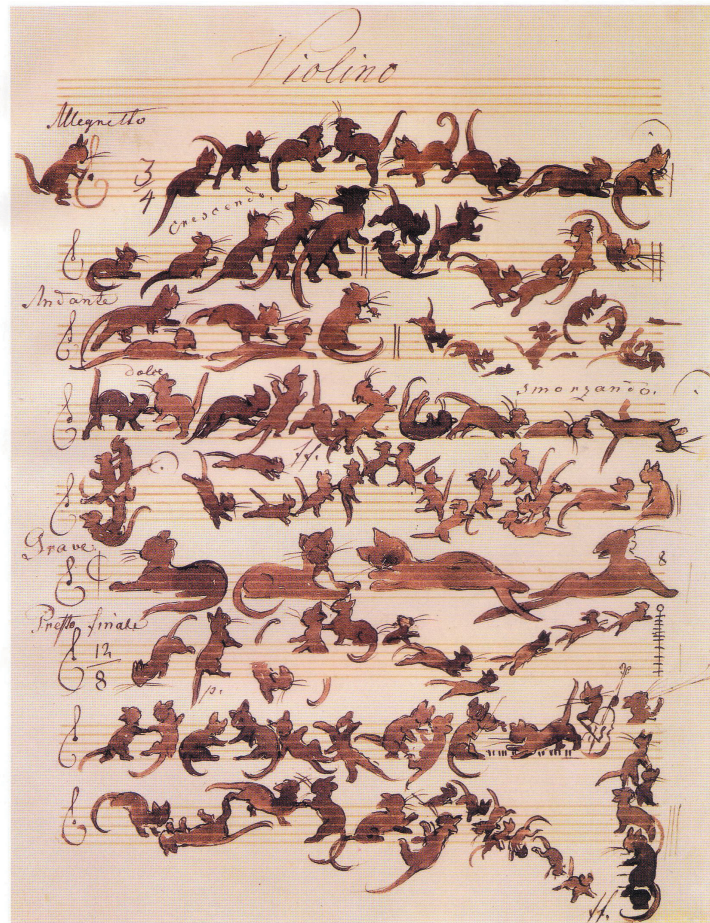 Violino
Allegretto
3/4
crescendo.
Andante
dolce
smorzando.
ff.
Grave
8
Presto finale
12/8
p.
ff.